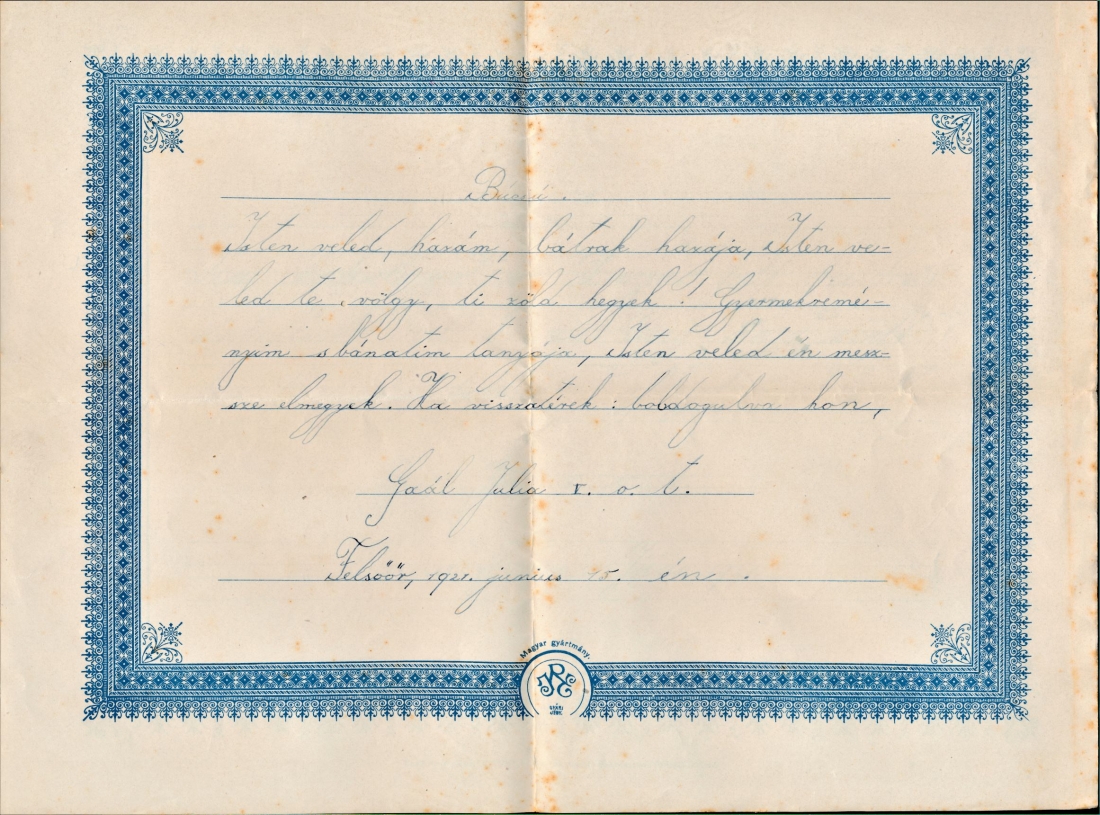 Búcsú.
Isten veled, hazám, bátrak hazája, Isten ve-
led te völgy, ti zöld hegyek! Gyermekremé-
nyim sbánatim tanyája, Isten veled én mesz-
sze elmegyek. Ha visszatérek: boldogulva hon,
Gaál Julia I. o. t.
Felsőőr, 1921. junius 15. én.
Magyar gyártmány.